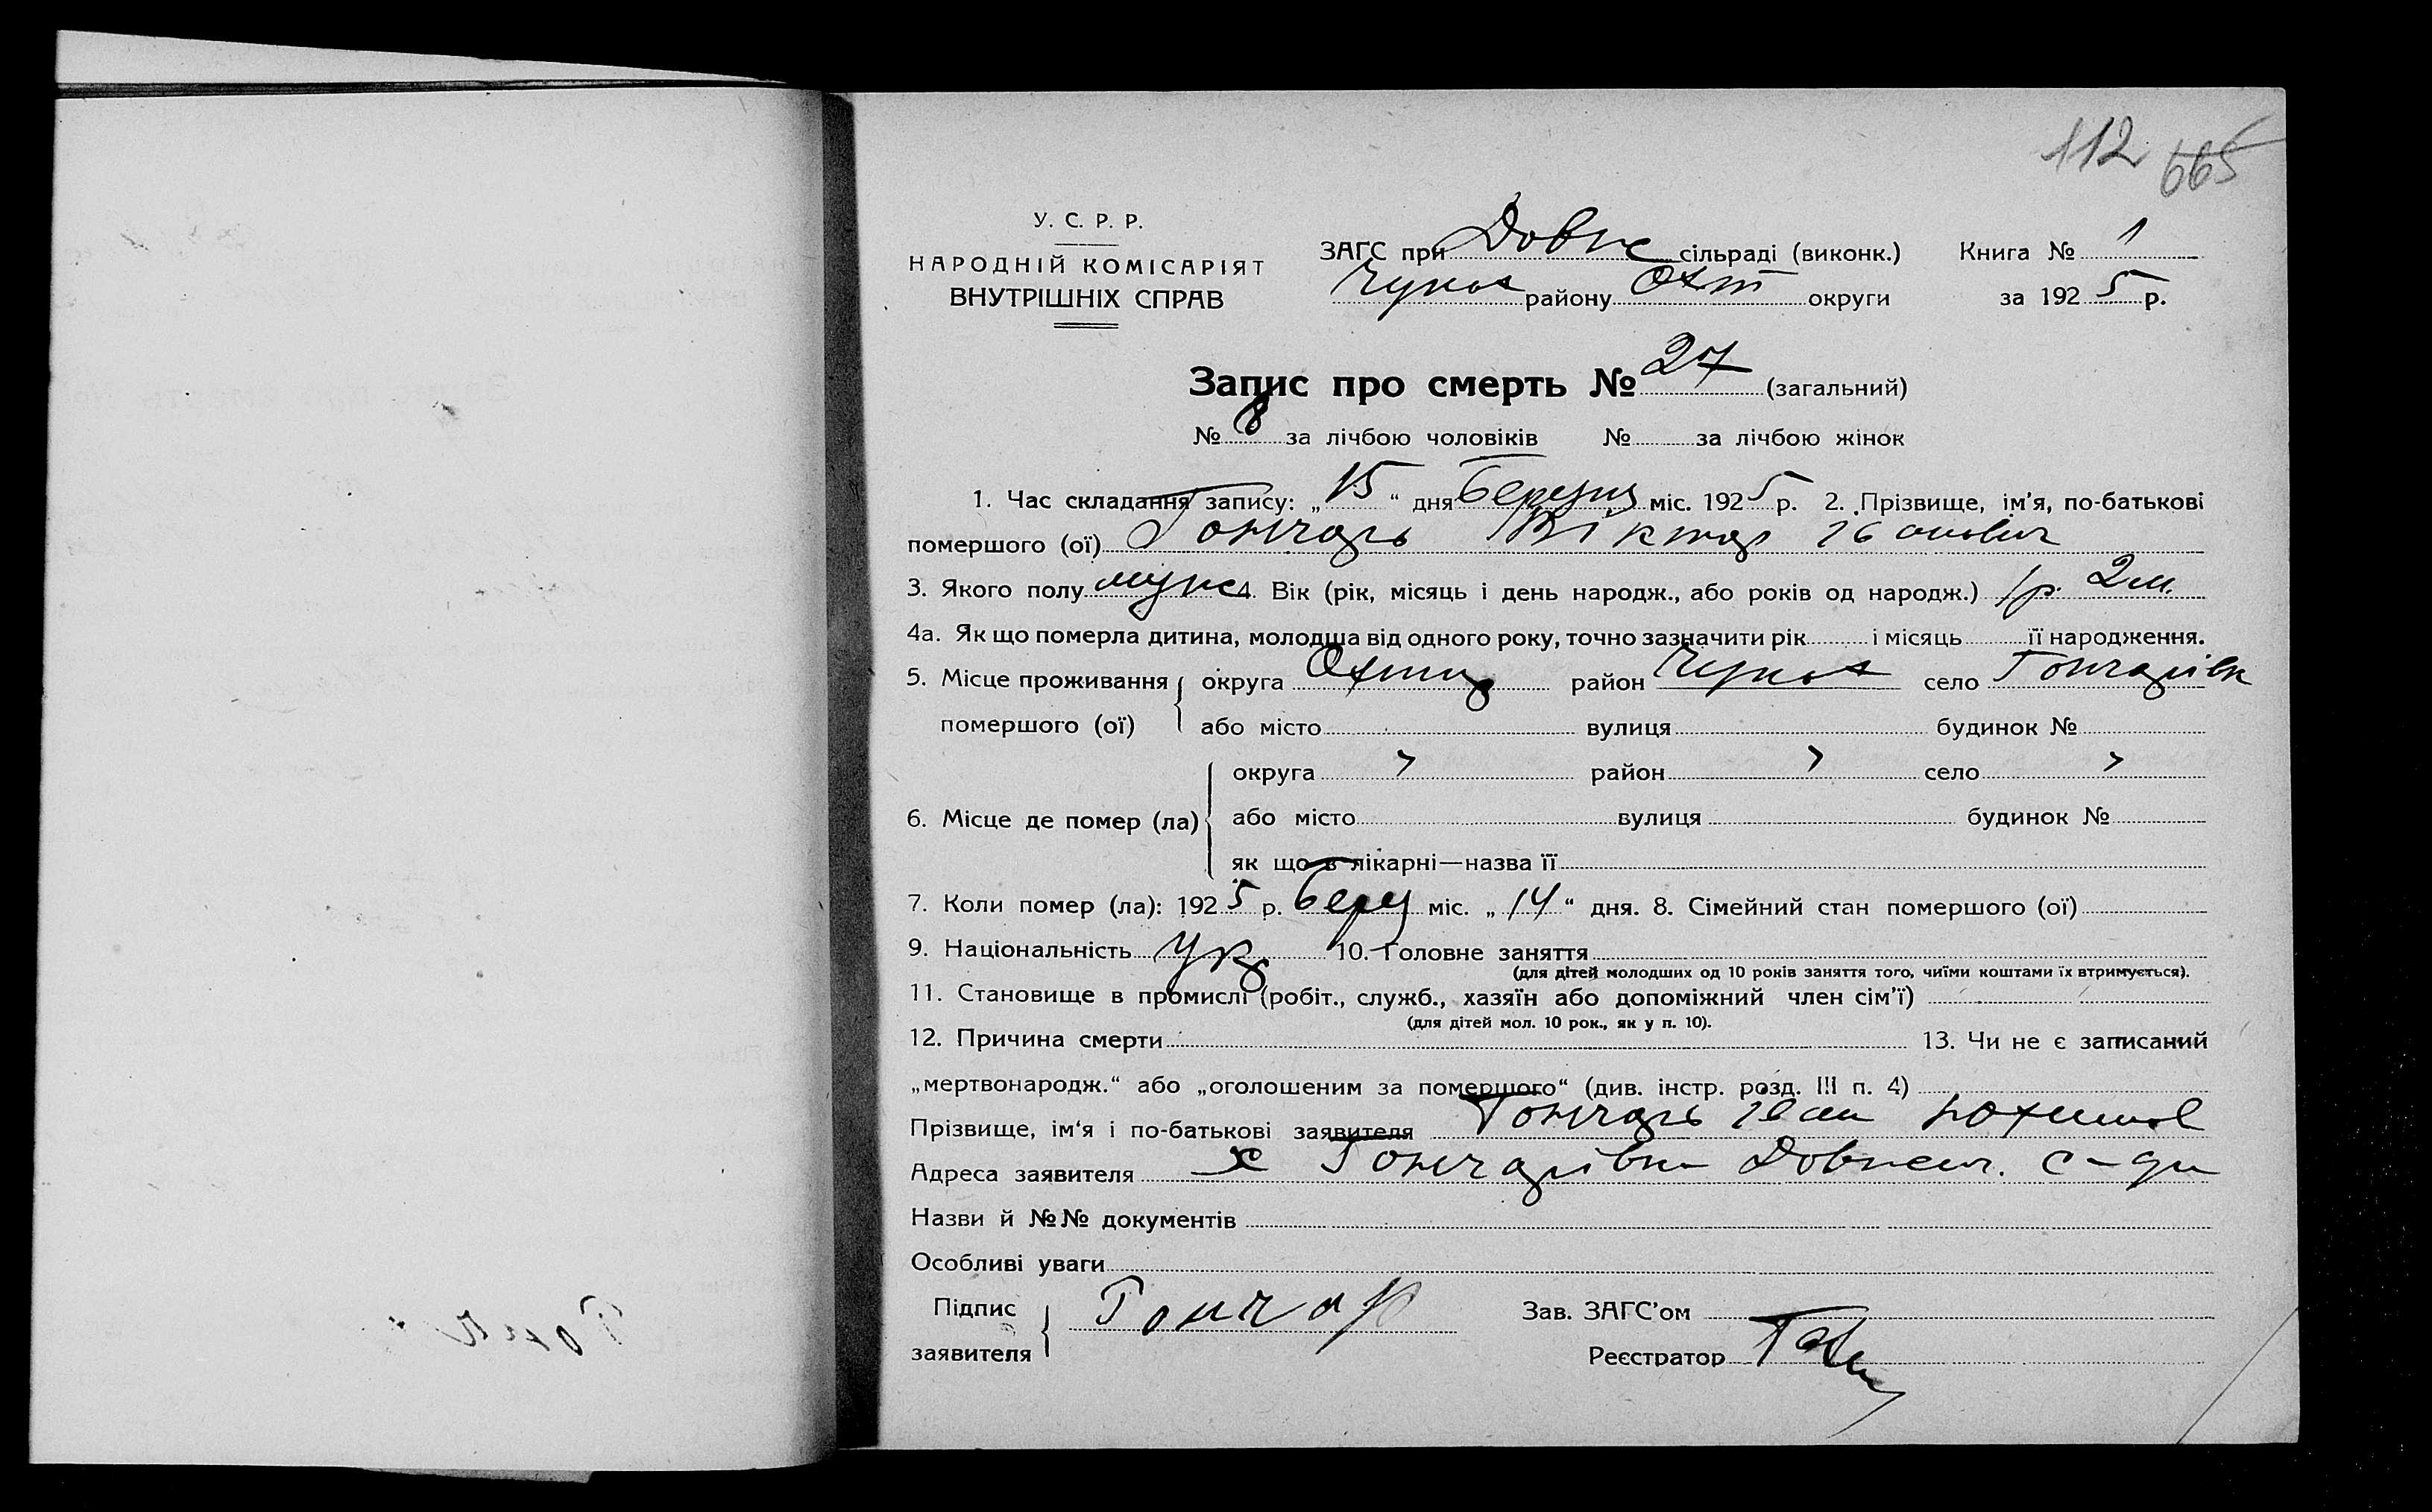 112 665
У. С. Р. Р.
НАРОДНІЙ КОМІСАРІЯТ
ВНУТРІШНІХ СПРАВ
ЗАГС при Довж сільраді (виконк.) Книга № 1
району Охт округи за 1925 р.
Запис про смерть № 27 (загальний)
№ 8 за лічбою чоловіків № за лічбою жінок
1. Час складання запису: „15“ дня Березня міс. 1925 р. 2. Прізвище, ім'я, по-батькові
помершого (ої) Гончарь Віктор Іванович
3. Якого полу муж 4. Вік (рік, місяць і день народж., або років од народж.) 1р. 2м.
4а. Як що померла дитина, молодша від одного року, точно зазначити рік і місяць її народження.
5. Місце проживання округа район село Гончарівк
помершого (ої) або місто вулиця будинок №
округа " район " село "
6. Місце де помер (ла) або місто вулиця будинок №
як що в лікарні—назва її
7. Коли помер (ла): 1925 р. Берез міс. „14“ дня. 8. Сімейний стан помершого (ої)
9. Національність Укр 10. Головне заняття
(для дітей молодших од 10 років заняття того, чиїми коштами їх втримується).
11. Становище в промислі (робіт., служб., хазяїн або допоміжний член сім'ї)
(для дітей мол. 10 рок., як у п. 10).
12. Причина смерти 13. Чи не є записаний
„мертвонародж.“ або „оголошеним за помершого“ (див. інстр. розд. III п. 4)
Прізвище, ім'я і по-батькові заявителя Гончарь Іван
Адреса заявителя х Гончарівка
Назви й №№ документів
Особливі уваги
Підпис
заявителя Гончар
Зав. ЗАГС'ом
Реєстратор